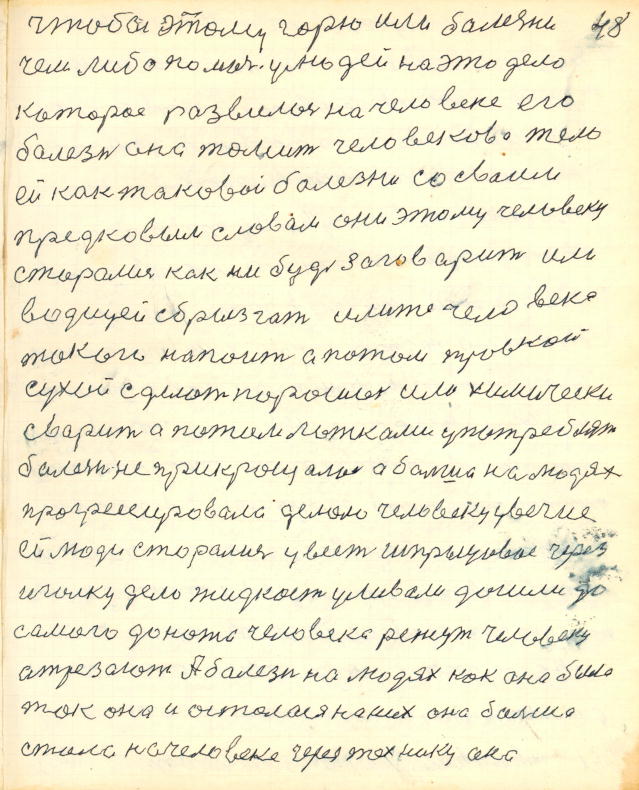 чтобы этому горю или балезни 48
чем либо помоч. у людей на это дело
которое развелося на человеке его
балезн она томит человеково тело
ей как таковой балезни со своим
предковым словам они этому человеку
старалися как ни будь заговарит или
водицей сбрызгат или те человека
токого напоит а потом тровкой
сухой сделат порошок или химически
сварит а потом ложками употреблят
балезн не прикрощалас а болша на людях
прогресировала делою человеку увечие
ей люди старалися увест шпрыцовое через
иголку дело жидкост уливали дошли до
самого до ножа человека режут человеку
атрезают А балезн на людях как она была
так она и осталася на них она болша
стала на человеке через технику она